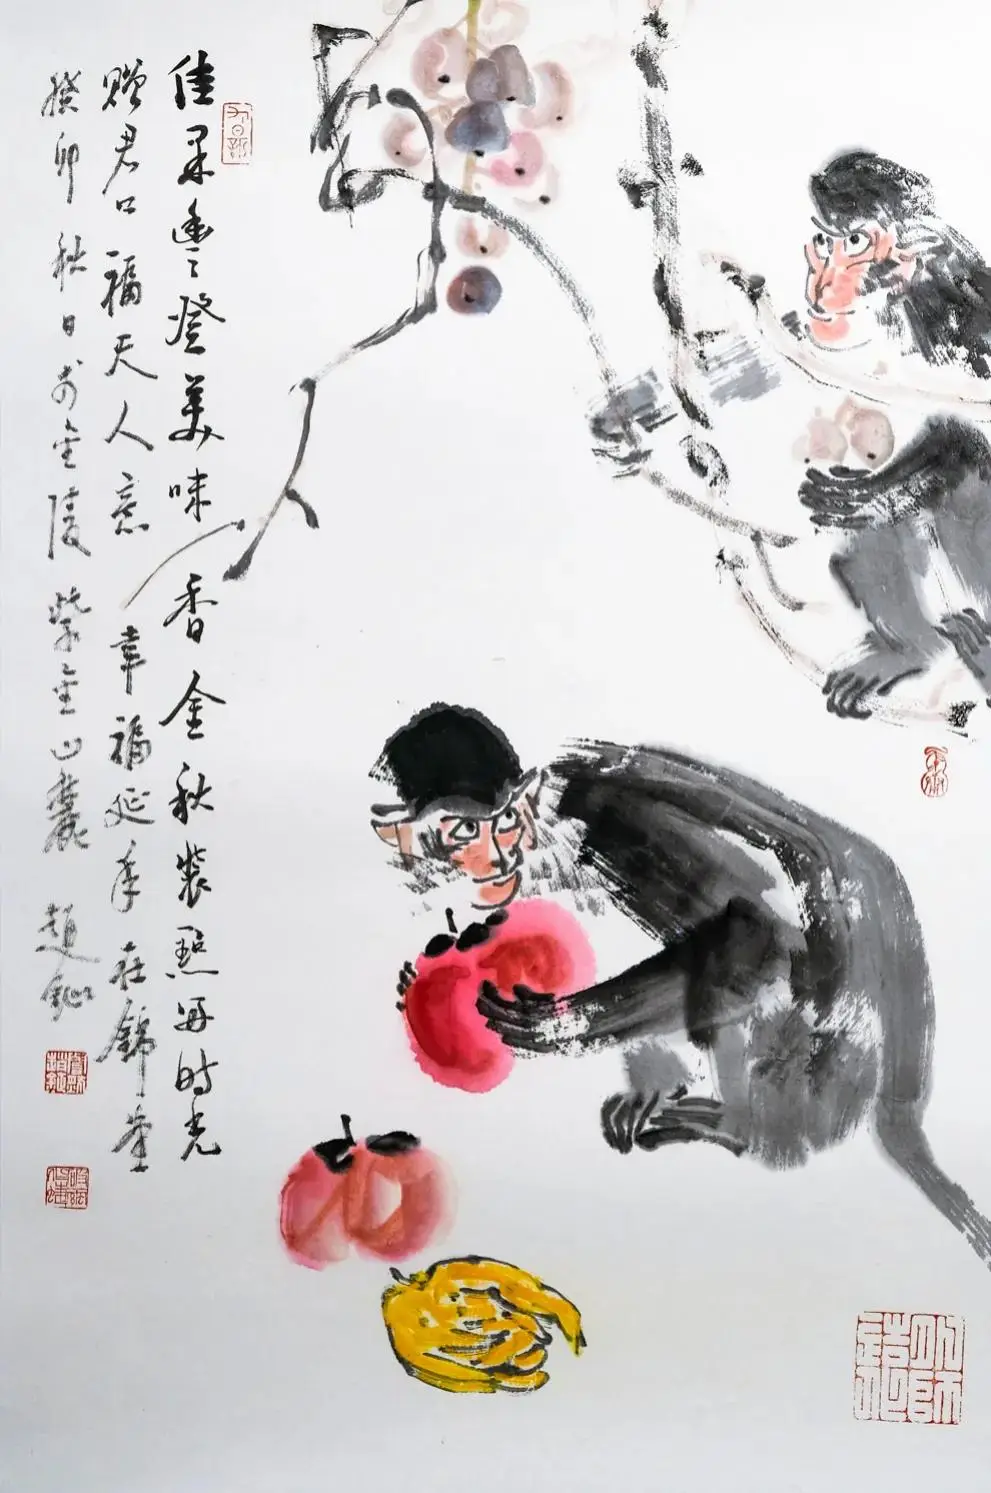 佳果豐登美味香金秋裝點好时光
贈君口福天人意幸福延年在錦堂
癸卯秋日於金陵紫金山麓 趙